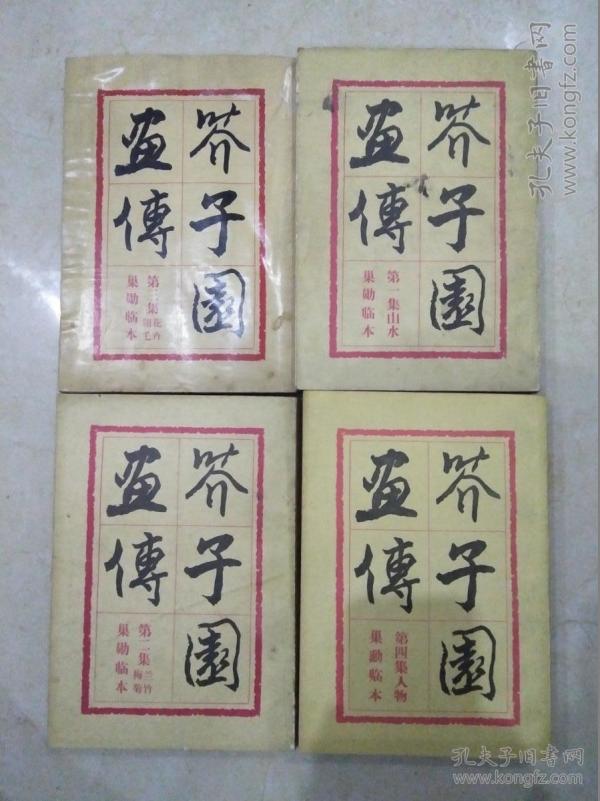 芥子園
畫傳
第三集花卉翎毛
巢勛临本
芥子園
畫傳
第一集山水
巢勋临本
芥子園
畫傳
第二集兰竹梅菊
巢勋临本
芥子園
畫傳
第四集人物
巢勳臨本
孔夫子旧书网
www.kongfz.com
孔夫子旧书网
www.kongfz.com